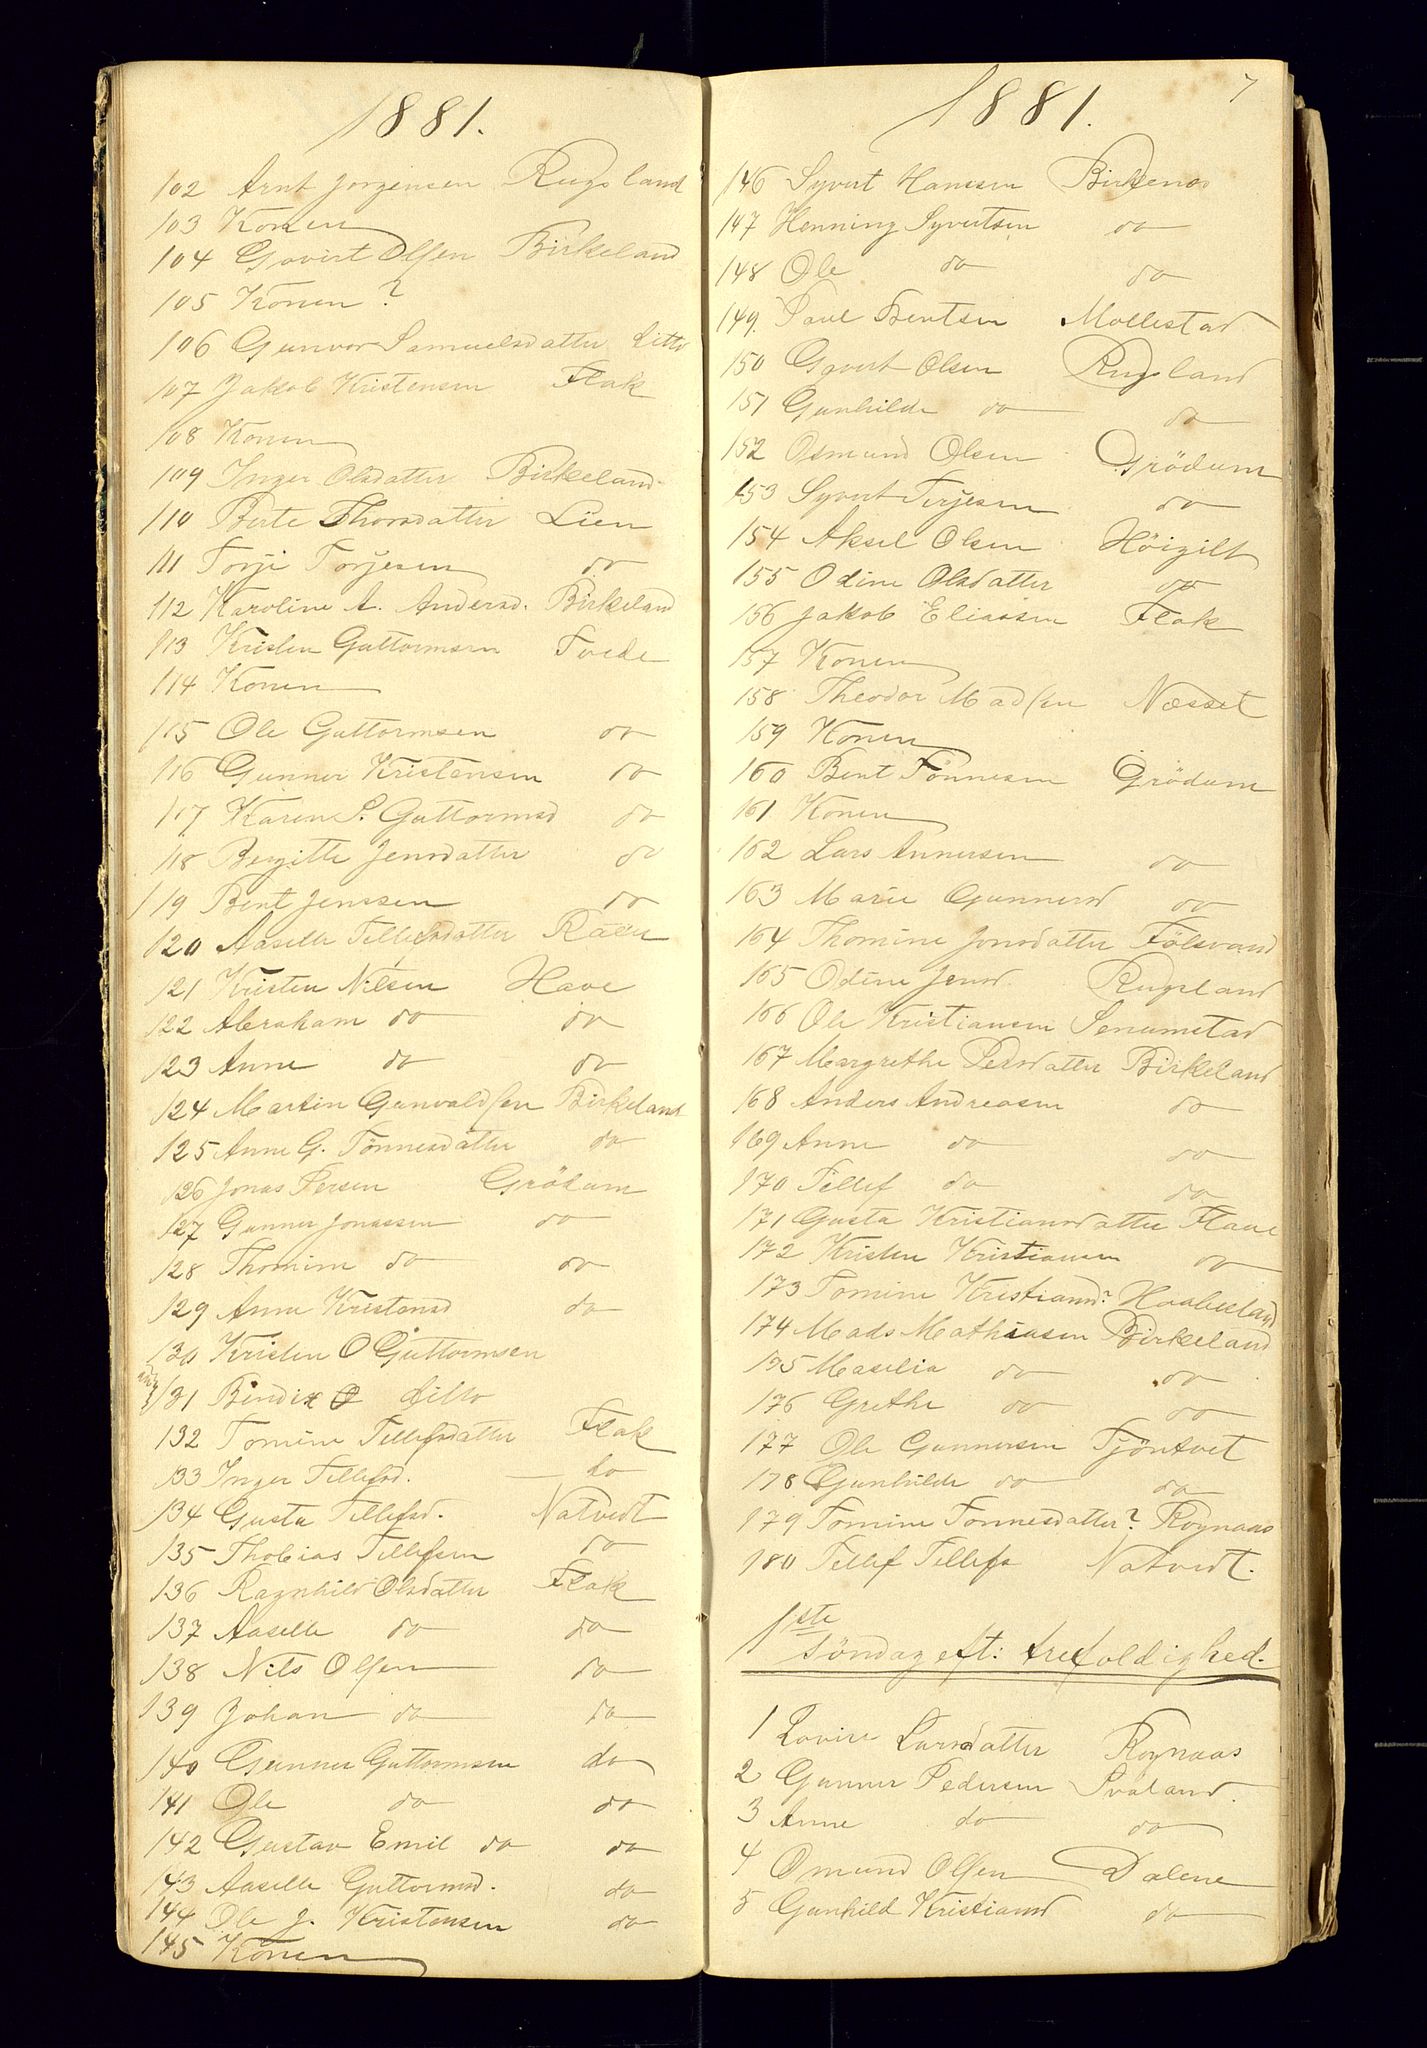 1881.
102 Arnt Jørgensen Rugsland
103 Konen
104 Govert Olsen Birkeland
105 Konen ?
106 Gunvor Samuelsdatter ditto
107 Jakob Kristensen Flak
108 Konen
109 Inger Olsdatter Birkeland
110 Berte Thorsdatter Lien
111 Torje Torjesen do
112 Karoline A. Andersd. Birkeland
113 Kristen Guttormsen Tvede
114 Konen
115 Ole Guttormsen do
116 Gunner Kristensen do
117 Karen P. Guttormsd do
118 Bergitte Jensdatter do
119 Bent Jenssen do
120 Aaselle Tellefsdatter
121 Kristen Nilsen Have
122 Abraham do do
123 Anne do do
124 Martin Gunvaldsen Birkeland
125 Anne G. Tönnesdatter do
126 Jonas Persen Grödum
127 Gunner Jonassen do
128 Thomine do do
129 Anne Kristensd do
130 Kristen O Guttormsen
131 Bendix O ditto
132 Tomine Tellefsdatter Flak
133 Inger Tellefsd. do
134 Gusta Tellefsd. Natvedt
135 Thobias Tellefsen do
136 Ragnhild Olsdatter Flak
137 Aaselle do do
138 Nils Olsen do
139 Johan do do
140 Gunner Guttormsen do
141 Ole do do
142 Gustav Emil do do
143 Aaselle Guttormsd. do
144 Ole J. Kristensen do
145 Konen
1881. 7
146 Syvert Hanssen Birkenes
147 Henning Syvertsen do
148 Ole do do
149. Paul Bentsen Mollestad
150 Govert Olsen Rugsland
151 Gunhilde do do
152 Osmund Olsen Grödum
153 Syvert Terjesen do
154 Aksel Olsen Höigilt
155 Odine Olsdatter do
156 Jakob Eliassen Flak
157 Konen
158 Theodor Madsen Næsset
159 Konen
160 Bent Tönnesen Grödum
161 Konen
162 Lars Annersen do
163 Marie Gunnersd do
164 Thomine Jonsdatter Fölsvand
165 Odine Jensd. Rugsland
166 Ole Kristiansen Senumstad
167 Margrethe Persdatter Birkeland
168 Anders Andreasen do
169 Anne do do
170 Tellef do do
171 Gusta Kristiansdatter Flaae
172 Kristen Kristiansen do
173 Tomine Kristiansd? Haabesland
174 Mads Mathiasen Birkeland
175 Maselia do do
176 Grethe do do
177 Ole Gunnersen Tjöntvet
178 Gunhilde do do
179 Tomine Tonnesdatter? Roynaas
180 Tellef Tellefs Natvedt.
1ste
söndag eft: trefoldighed.
1 Lovise Larsdatter Roynaas
2 Gunner Pedersen Svaland.
3 Anne do do
4 Omund Olsen Dalene
5 Gunhild Kristiansd do